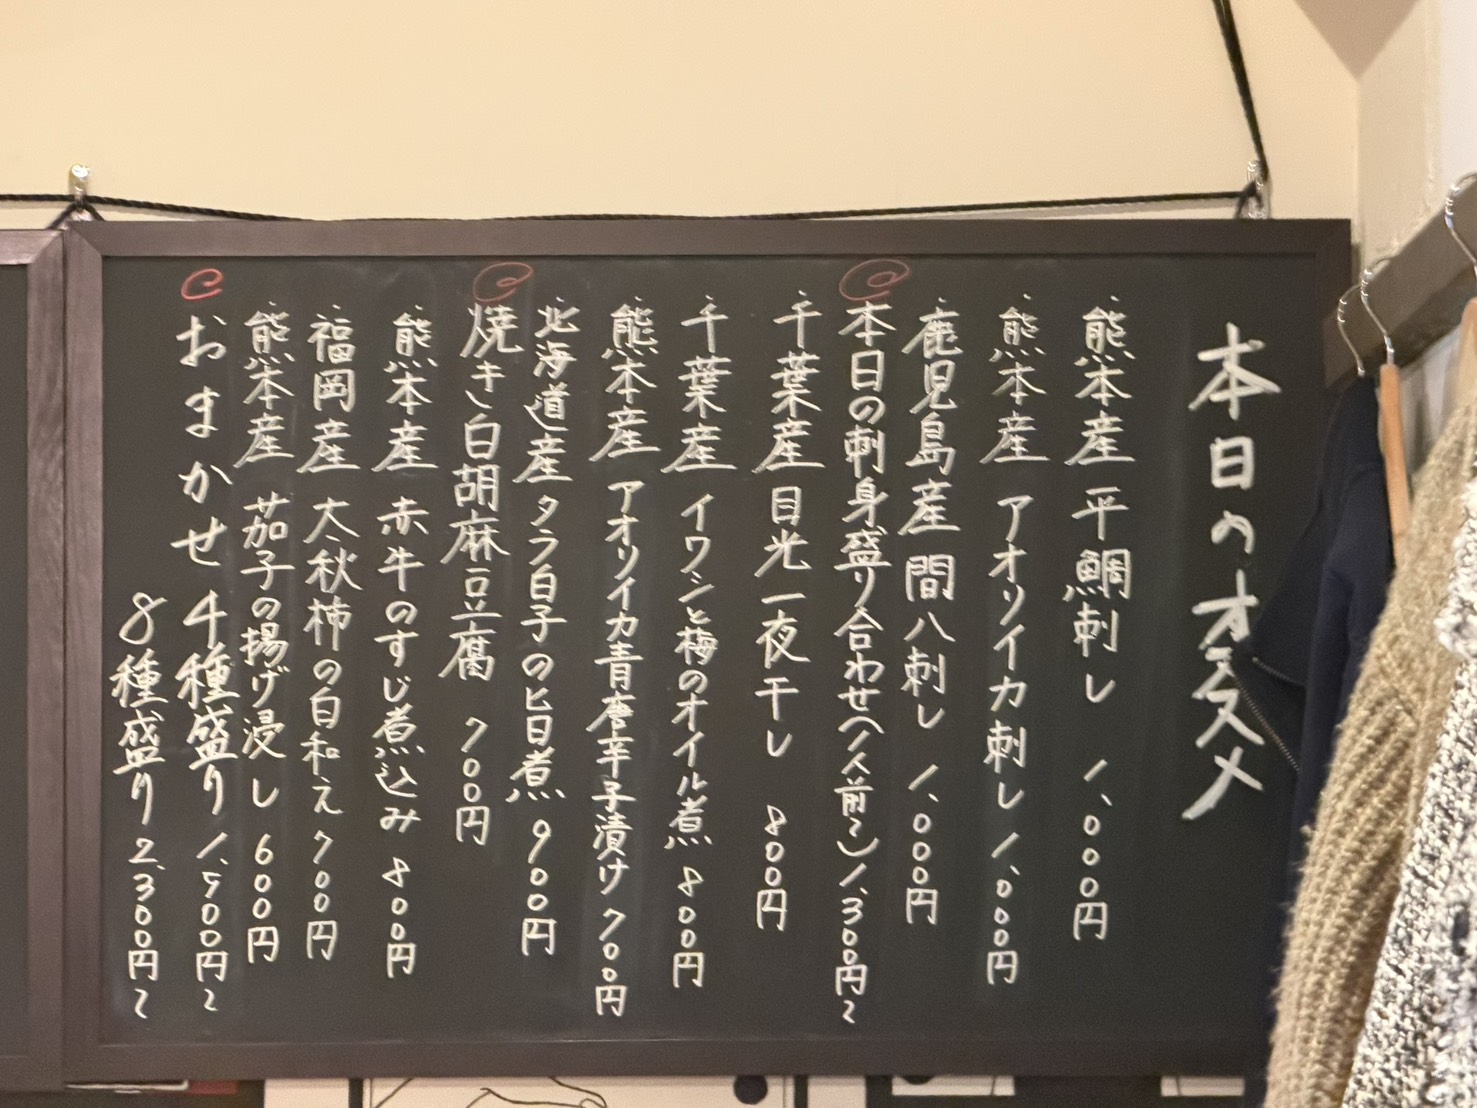 本日のオススメ
・熊本産 平鯛刺し 1,000円
・熊本産 アオリイカ刺し 1,000円
・鹿児島産 間八刺し 1,000円
・本日の刺身盛り合わせ(1人前〜) 1,300円〜
・千葉産 目光一夜干し 800円
・千葉産 イワシと梅のオイル煮 800円
・熊本産 アオリイカ青唐辛子漬け 700円
・北海道産 タラ白子の旨煮 900円
・焼き白胡麻豆腐 700円
・熊本産 赤牛のすじ煮込み 800円
・福岡産 太秋柿の白和え 700円
・熊本産 茄子の揚げ浸し 600円
おまかせ 4種盛り 1,500円〜
8種盛り 2,300円〜